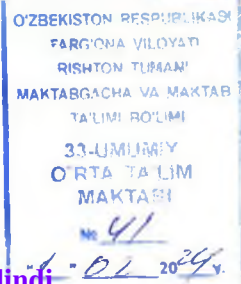 O'ZBEKISTON RESPUBLIKASI
FARG'ONA VILOYATI
RISHTON TUMANI
MAKTABGACHA VA MAKTAB
TA'LIMI BO'LIMI
33-UMUMIY
O'RTA TA'LIM
MAKTABI
№ 41
"1" 02 2024 y.
lindi